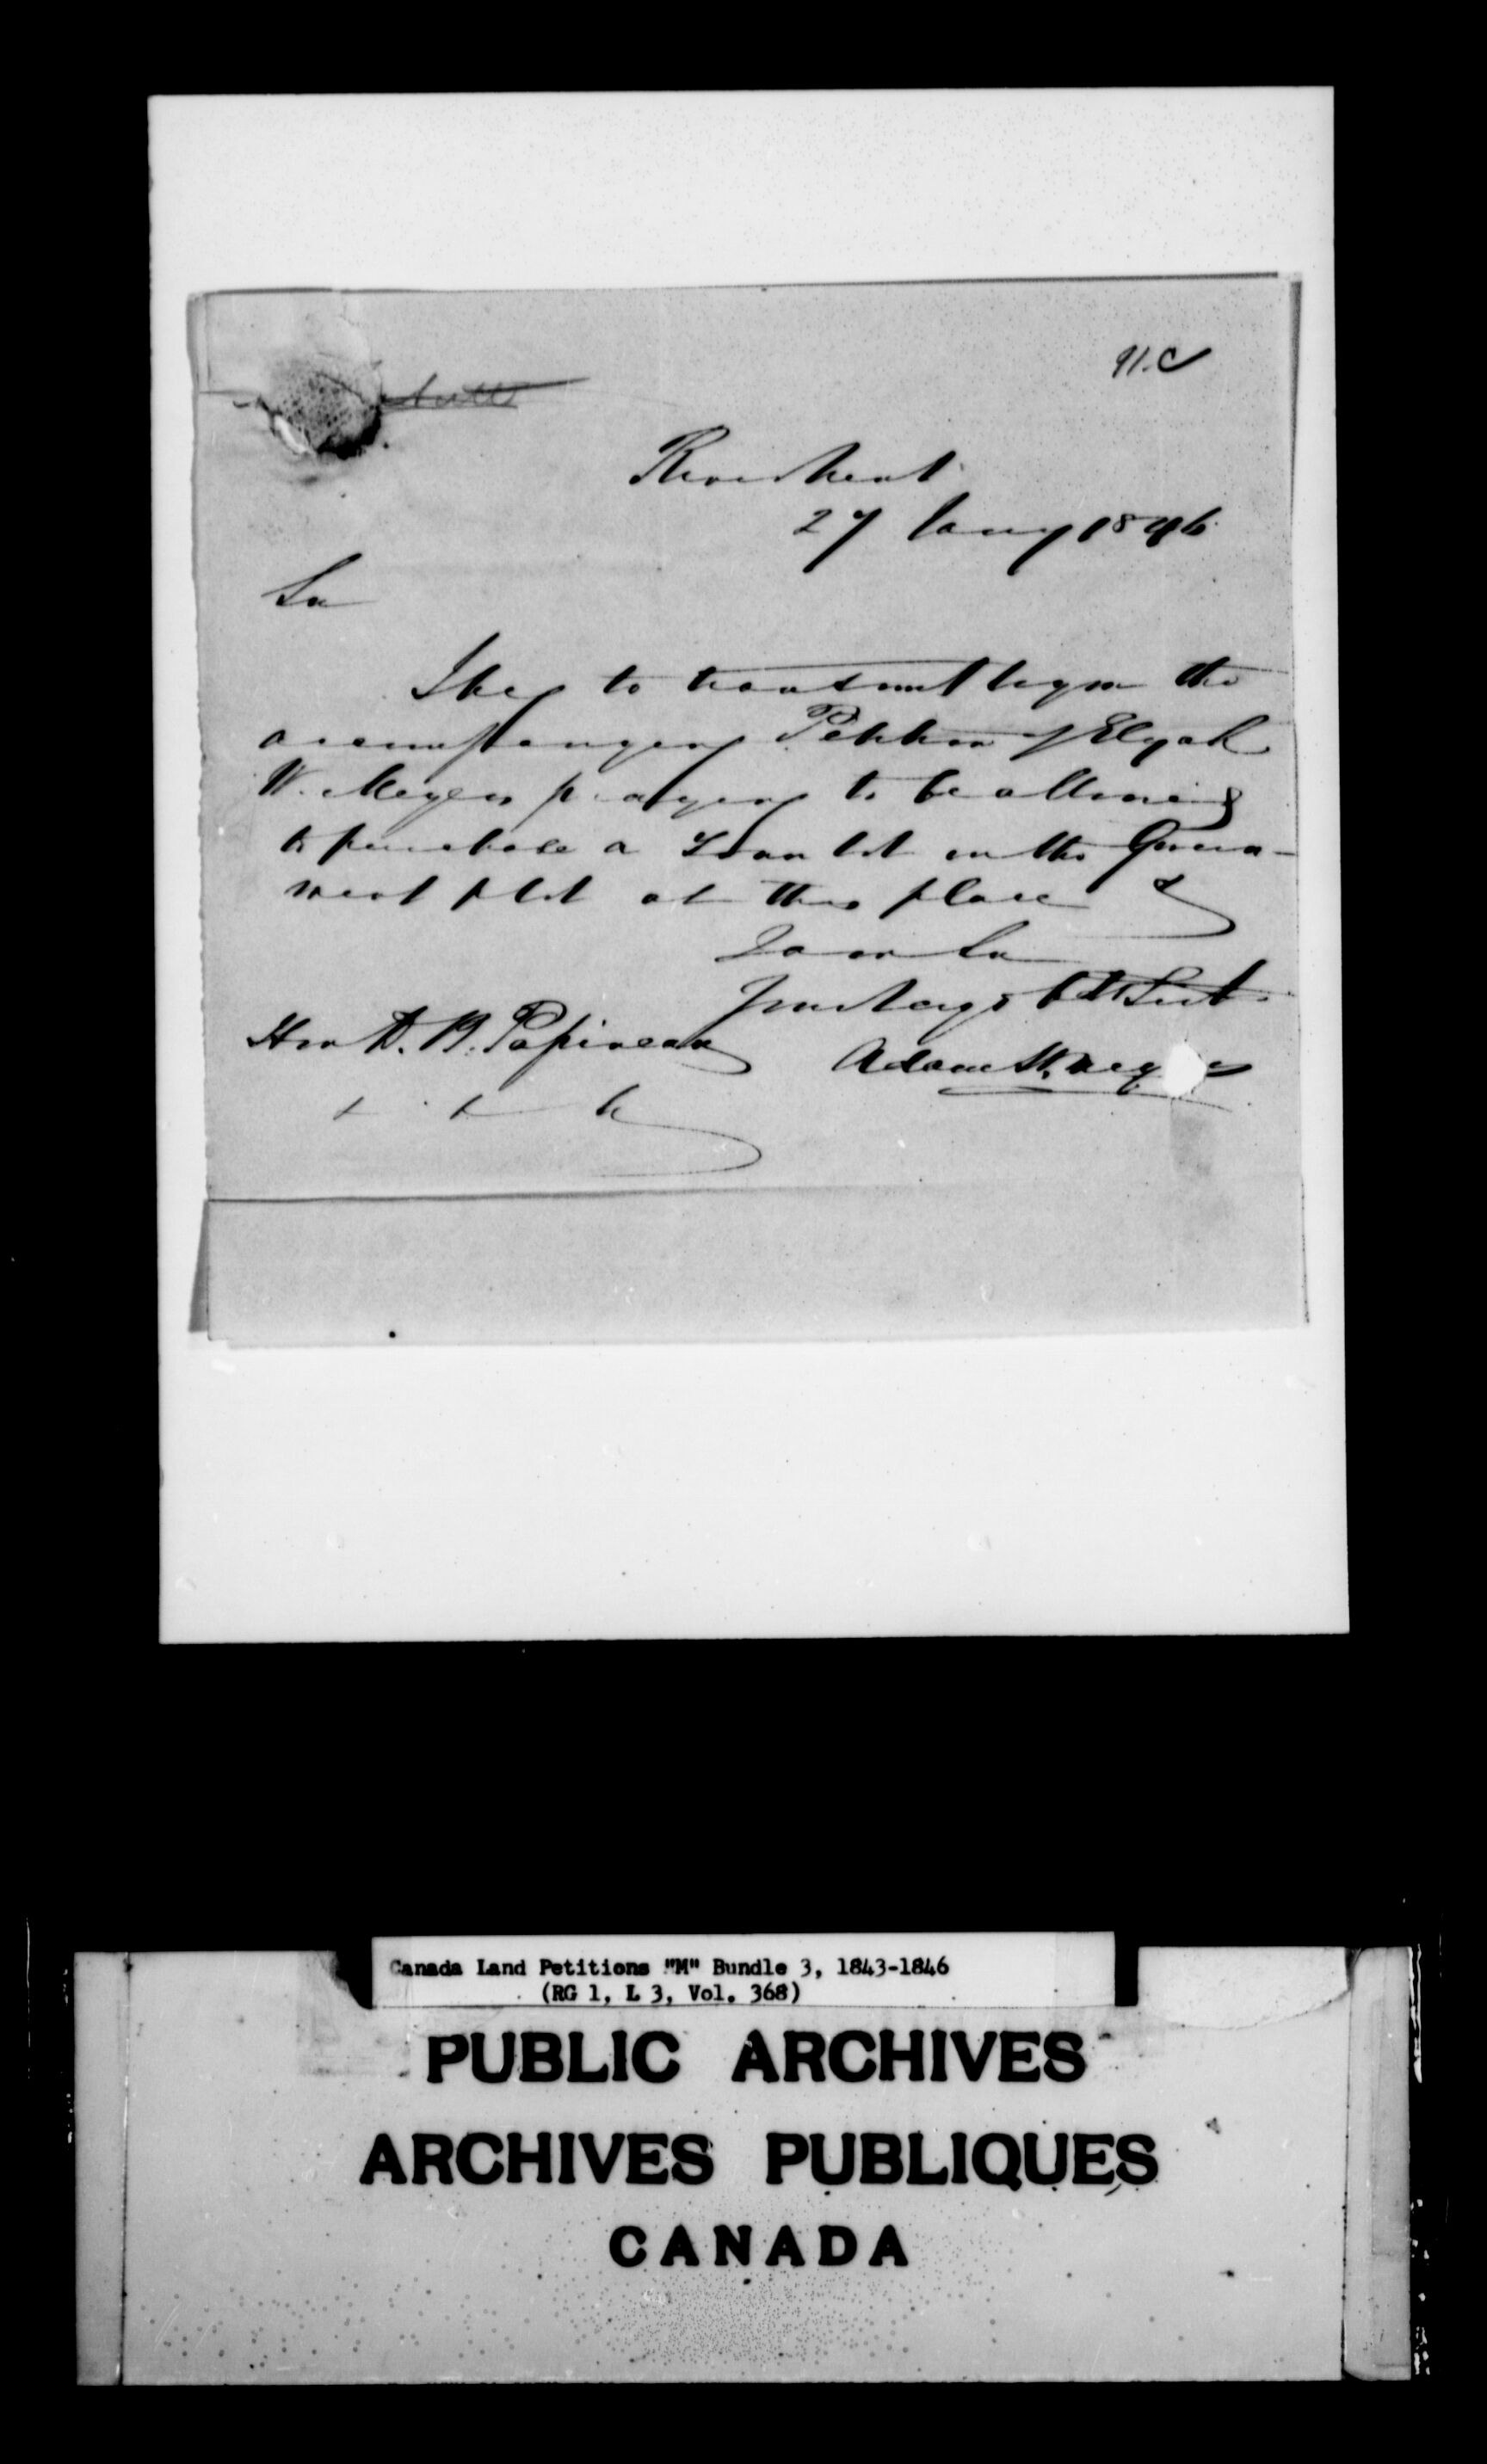 91.c
River Trent
27 Jany 1846
Sir
I beg to transmit to you the
accompanying Petition of Elijah
W. Meyers praying to be allowed
to purchase a Town lot in the Govern-
ment plot at this place &
I am Sir
Your Obt Servt
Hon D. B. Papineau
Adam H. Mey
& & &
Canada Land Petitions "M" Bundle 3, 1843-1846
(RG 1, L 3, Vol. 368)
PUBLIC ARCHIVES
ARCHIVES PUBLIQUES
CANADA